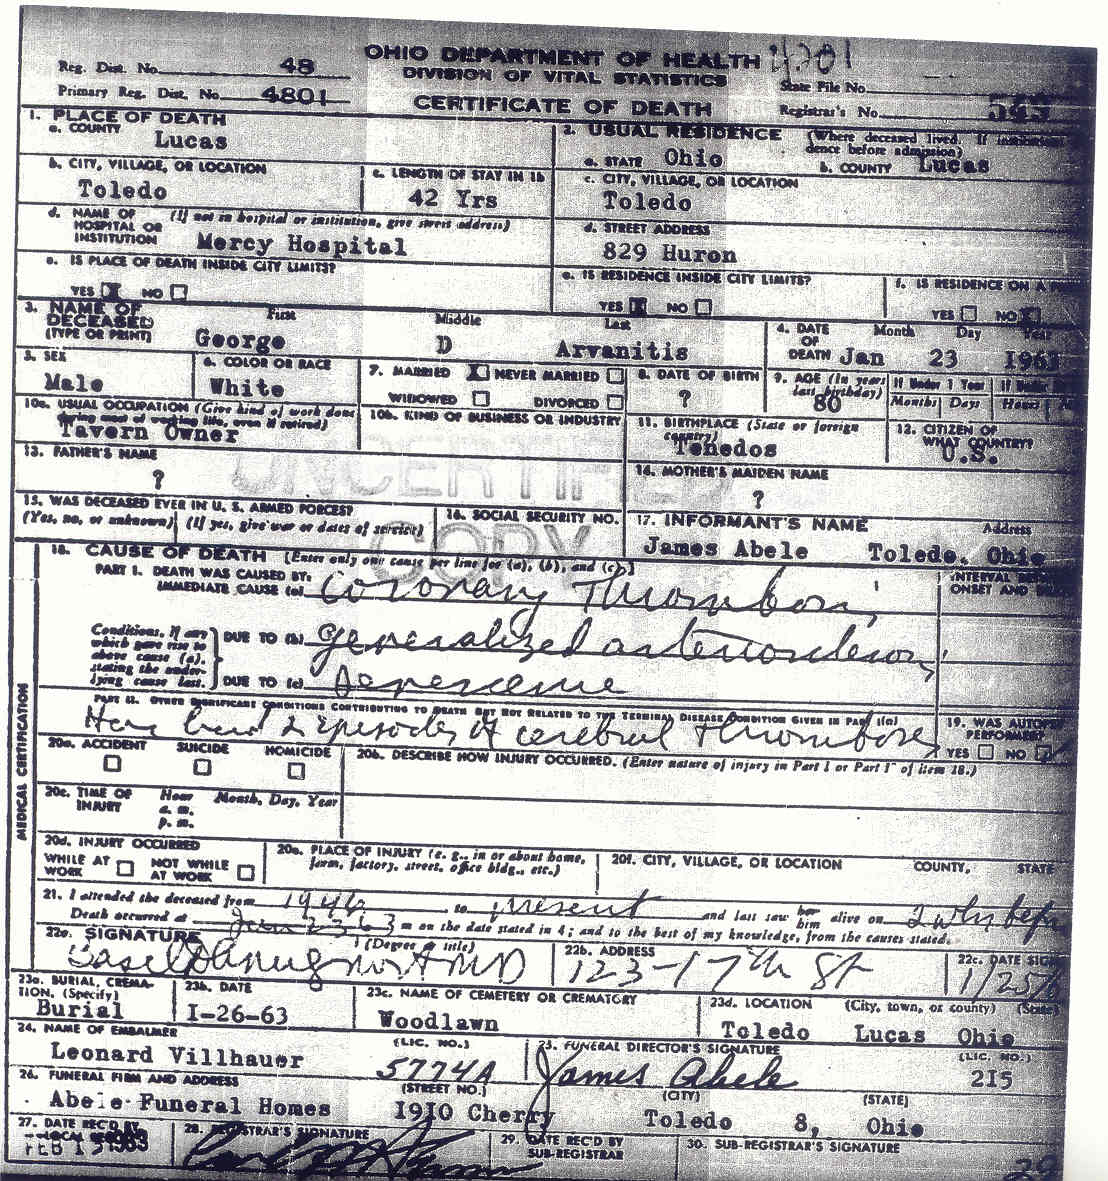 OHIO DEPARTMENT OF HEALTH
DIVISION OF VITAL STATISTICS
CERTIFICATE OF DEATH
Reg. Dist. No. 48
Primary Reg. Dist. No. 4801
State File No.
Registrar's No. 549
1. PLACE OF DEATH
a. COUNTY Lucas
2. USUAL RESIDENCE (Where deceased lived. If
dence before admission)
a. STATE Ohio b. COUNTY Lucas
b. CITY, VILLAGE, OR LOCATION
Toledo
c. LENGTH OF STAY IN 1b
42 Yrs
c. CITY, VILLAGE, OR LOCATION
Toledo
d. NAME OF HOSPITAL OR INSTITUTION (If not in hospital or institution, give street address)
Mercy Hospital
d. STREET ADDRESS
829 Huron
e. IS PLACE OF DEATH INSIDE CITY LIMITS?
YES X NO
e. IS RESIDENCE INSIDE CITY LIMITS?
YES X NO
f. IS RESIDENCE ON A
YES NO X
3. NAME OF DECEASED (TYPE OR PRINT)
First Middle Last
George D Arvanitis
4. DATE OF DEATH Month Day Year
Jan 23 1963
5. SEX
Male
6. COLOR OR RACE
White
7. MARRIED X NEVER MARRIED
WIDOWED DIVORCED
8. DATE OF BIRTH
?
9. AGE (In years last birthday)
80
If Under 1 Year
Months Days
Hours
10a. USUAL OCCUPATION (Give kind of work done during most of working life, even if retired)
Tavern Owner
10b. KIND OF BUSINESS OR INDUSTRY
11. BIRTHPLACE (State or foreign country)
Tenedos
12. CITIZEN OF WHAT COUNTRY?
U.S.
13. FATHER'S NAME
?
14. MOTHER'S MAIDEN NAME
?
UNCERTIFIED
COPY
15. WAS DECEASED EVER IN U. S. ARMED FORCES?
(Yes, no, or unknown) (If yes, give war or dates of service)
16. SOCIAL SECURITY NO.
17. INFORMANT'S NAME Address
James Abele Toledo, Ohio
MEDICAL CERTIFICATION
18. CAUSE OF DEATH [Enter only one cause per line for (a), (b), and (c)]
INTERVAL
ONSET AND
PART I. DEATH WAS CAUSED BY:
IMMEDIATE CAUSE (a) Coronary Thrombosis,
Conditions, if any which gave rise to above cause (a), stating the underlying cause last.
DUE TO (b) generalized arteriosclerosis,
DUE TO (c)
PART II. OTHER SIGNIFICANT CONDITIONS CONTRIBUTING TO DEATH BUT NOT RELATED TO THE TERMINAL DISEASE CONDITION GIVEN IN PART I(a)
2 episodes of cerebral thrombosis
19. WAS AUTOPSY PERFORMED?
YES NO
20a. ACCIDENT SUICIDE HOMICIDE
20b. DESCRIBE HOW INJURY OCCURRED. (Enter nature of injury in Part I or Part II of item 18.)
20c. TIME OF INJURY Hour Month, Day, Year
a. m.
p. m.
20d. INJURY OCCURRED
WHILE AT WORK NOT WHILE AT WORK
20e. PLACE OF INJURY (e. g., in or about home, farm, factory, street, office bldg., etc.)
20f. CITY, VILLAGE, OR LOCATION COUNTY, STATE
21. I attended the deceased from 1946 to present and last saw her him alive on 2 wks before
Death occurred at Jan 23 63 m on the date stated in 4; and to the best of my knowledge, from the causes stated.
22a. SIGNATURE (Degree or title)
MD
22b. ADDRESS
123-17th St
22c. DATE SIGNED
1/25/6
23a. BURIAL, CREMATION, (Specify)
Burial
23b. DATE
I-26-63
23c. NAME OF CEMETERY OR CREMATORY
Woodlawn
23d. LOCATION (City, town, or county) (State)
Toledo Lucas Ohio
24. NAME OF EMBALMER (LIC. NO.)
Leonard Villhauer 5774A
25. FUNERAL DIRECTOR'S SIGNATURE (LIC. NO.)
James Abele 2I5
26. FUNERAL FIRM AND ADDRESS (STREET NO.) (CITY) (STATE)
Abele Funeral Homes I9I0 Cherry Toledo 8, Ohio
27. DATE REC'D BY LOCAL
FEB 1963
28. REGISTRAR'S SIGNATURE
29. DATE REC'D BY SUB-REGISTRAR
30. SUB-REGISTRAR'S SIGNATURE